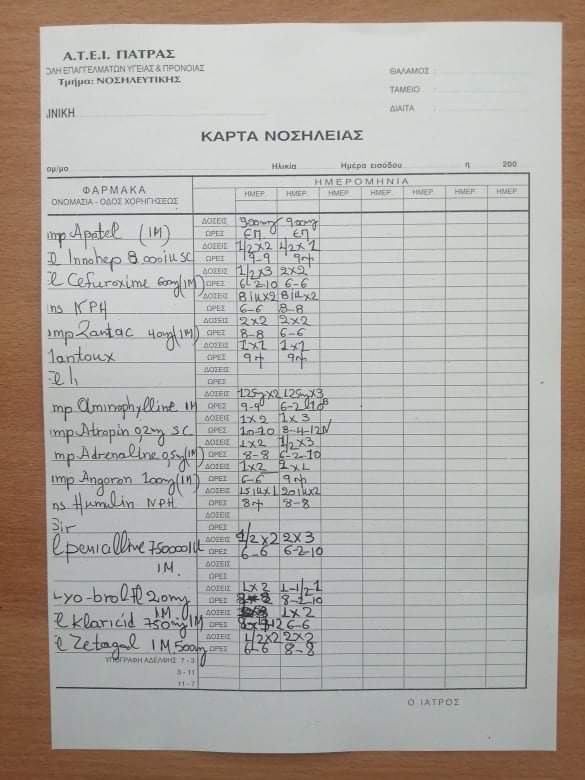 Α.Τ.Ε.Ι. ΠΑΤΡΑΣ
ΟΛΗ ΕΠΑΓΓΕΛΜΑΤΩΝ ΥΓΕΙΑΣ & ΠΡΟΝΟΙΑΣ
Τμήμα: ΝΟΣΗΛΕΥΤΙΚΗΣ
ΘΑΛΑΜΟΣ :
ΤΑΜΕΙΟ :
ΔΙΑΙΤΑ :
ΙΝΙΚΗ
ΚΑΡΤΑ ΝΟΣΗΛΕΙΑΣ
ομ/μο Ηλικία Ημέρα εισόδου η 200
ΦΑΡΜΑΚΑ ΗΜΕΡΟΜΗΝΙΑ
ΟΝΟΜΑΣΙΑ - ΟΔΟΣ ΧΟΡΗΓΗΣΕΩΣ ΗΜΕΡ. ΗΜΕΡ. ΗΜΕΡ. ΗΜΕΡ. ΗΜΕΡ. ΗΜΕΡ. ΗΜΕΡ.
ΔΟΣΕΙΣ 900mg 900mg
mp Apotel (IM) ΩΡΕΣ επ επ
ΔΟΣΕΙΣ 1/2x2 1/2x1
fl Innohep 8000iu sc ΩΡΕΣ 9-9 9π
ΔΟΣΕΙΣ 1/2x3 2x2
fl Cefuroxime 600mg (IM) ΩΡΕΣ 6-2-10 6-6
ΔΟΣΕΙΣ 8iux2 8iux2
ns NPH ΩΡΕΣ 6-6 8-8
ΔΟΣΕΙΣ 2x2 2x2
mp Zantac 40mg (IM) ΩΡΕΣ 8-8 6-6
ΔΟΣΕΙΣ 1x1 1x1
Mantoux ΩΡΕΣ 9π 9π
ΔΟΣΕΙΣ
ΩΡΕΣ
ΔΟΣΕΙΣ 125mgx2 125mgx3
mp Aminophylline IM ΩΡΕΣ 9-9 6-2-10
ΔΟΣΕΙΣ 1x2 1x3
mp Atropin 0,2mg SC ΩΡΕΣ 10-10 8-4-12
ΔΟΣΕΙΣ 1x2 1/2x3
mp Adrenaline 0,5mg (IM) ΩΡΕΣ 8-8 6-2-10
ΔΟΣΕΙΣ 1x2 1x1
imp Angoron 100mg (IM) ΩΡΕΣ 6-6 9π
ΔΟΣΕΙΣ 15iux1 20iux2
ns Humulin NPH ΩΡΕΣ 8π 8-8
ΔΟΣΕΙΣ
ΩΡΕΣ
ΔΟΣΕΙΣ 1/2x2 2x3
fl penicilline 750000IU ΩΡΕΣ 6-6 6-2-10
IM. ΔΟΣΕΙΣ
ΩΡΕΣ
ΔΟΣΕΙΣ 1x2 1-1/2-1
Lyo-brol fl 20mg ΩΡΕΣ 8-2-10
IM ΔΟΣΕΙΣ 1x2
fl Klaricid 750mg IM ΩΡΕΣ 6-6
ΔΟΣΕΙΣ 1/2x2 2x2
fl Zetagal IM 500mg ΩΡΕΣ 6-6 8-8
ΥΠΟΓΡΑΦΗ ΑΔΕΛΦΗΣ 7 - 3
3 - 11
11 - 7
Ο ΙΑΤΡΟΣ